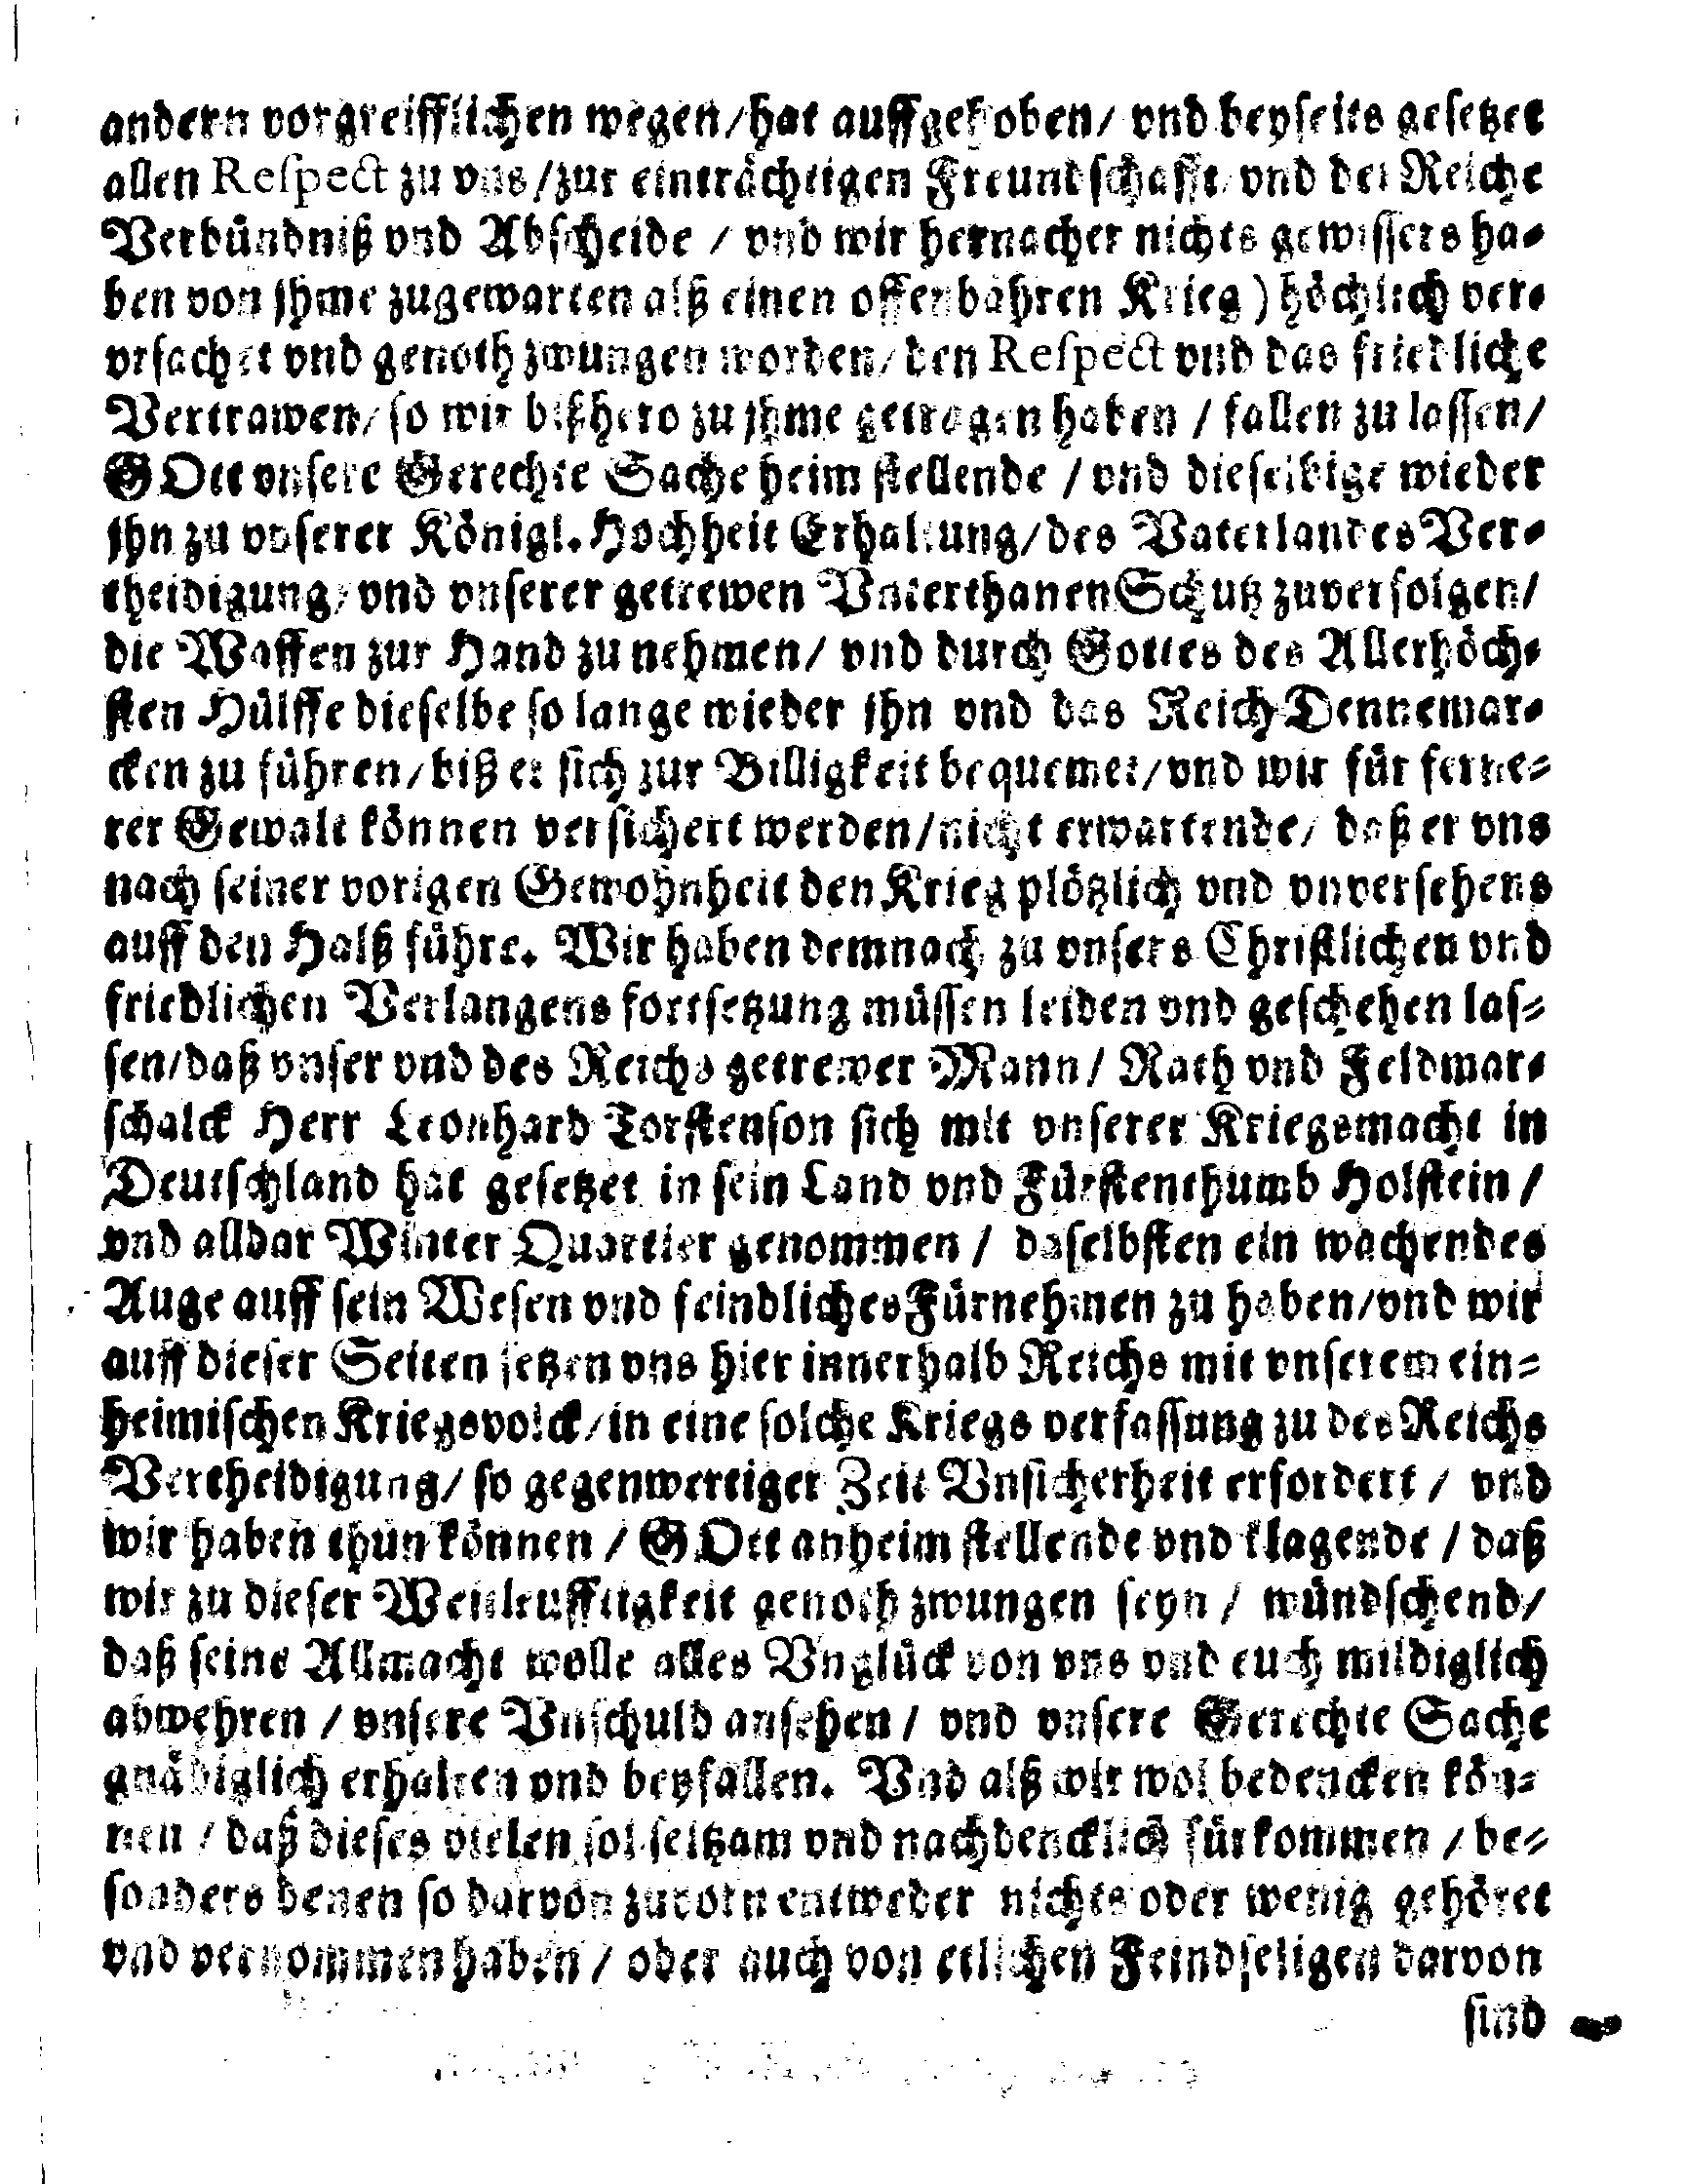 andern vorgreifflichen wegen/hat auffgehoben/ vnd beyseits gesetzet
allen Respect zu vns/zur einträchtigen Freundschafft/ vnd der Reiche
Verbündniß vnd Abscheide / vnd wir hernacher nichts gewissers ha-
ben von jhme zugewarten alß einen offenbahren Krieg) höchlich ver-
vrsachet vnd genothzwungen worden/ den Respect vnd das friedliche
Vertrawen/ so wir bißhero zu jhme getragen haben / fallen zu lassen/
GOtt vnsere Gerechte Sache heim stellende / vnd dieselbige wieder
jhn zu vnserer Königl. Hochheit Erhaltung/des Vaterlandes Ver-
theidigung/ vnd vnserer getrewen Vnterthanen Schutz zuverfolgen/
die Waffen zur Hand zu nehmen/ vnd durch Gottes des Allerhöch-
sten Hülffe dieselbe so lange wieder jhn vnd das Reich Dennemar-
cken zu führen/biß er sich zur Billigkeit bequemet/vnd wir für ferne-
rer Gewalt können versichert werden/nicht erwartende/ daß er vns
nach seiner vorigen Gewohnheit den Krieg plötzlich vnd vnversehens
auff den Halß führe. Wir haben demnach zu vnsers Christlichen vnd
friedlichen Verlangens fortsetzung müssen leiden vnd geschehen las-
sen/daß vnser vnd des Reichs getrewer Mann/ Rath vnd Feldmar-
schalck Herr Leonhard Torstenson sich mit vnserer Kriegsmacht in
Deutschland hat gesetzet in sein Land vnd Fürstenthumb Holstein /
vnd alldar Winter Quartier genommen / daselbsten ein wachendes
Auge auff sein Wesen vnd feindliches Fürnehmen zu haben/vnd wir
auff dieser Seiten setzen vns hier innerhalb Reichs mit vnserem ein-
heimischen Kriegsvolck/in eine solche Kriegs verfassung zu des Reichs
Vertheidigung/ so gegenwertiger Zeit Vnsicherheit erfordert / vnd
wir haben thun können / GOtt anheim stellende vnd klagende / daß
wir zu dieser Weitleufftigkeit genothzwungen seyn / wündschend/
daß seine Allmacht wolle alles Vnglück von vns vnd euch mildiglich
abwehren / vnsere Vnschuld ansehen / vnd vnsere Gerechte Sache
gnädiglich erhalten vnd beyfallen. Vnd alß wir wol bedencken kön-
nen / daß dieses vielen sol seltzam vnd nachdencklich fürkommen / be-
sonders denen so darvon zuvorn entweder nichts oder wenig gehöret
vnd vernommen haben / oder auch von etlichen Feindseligen darvon
sind